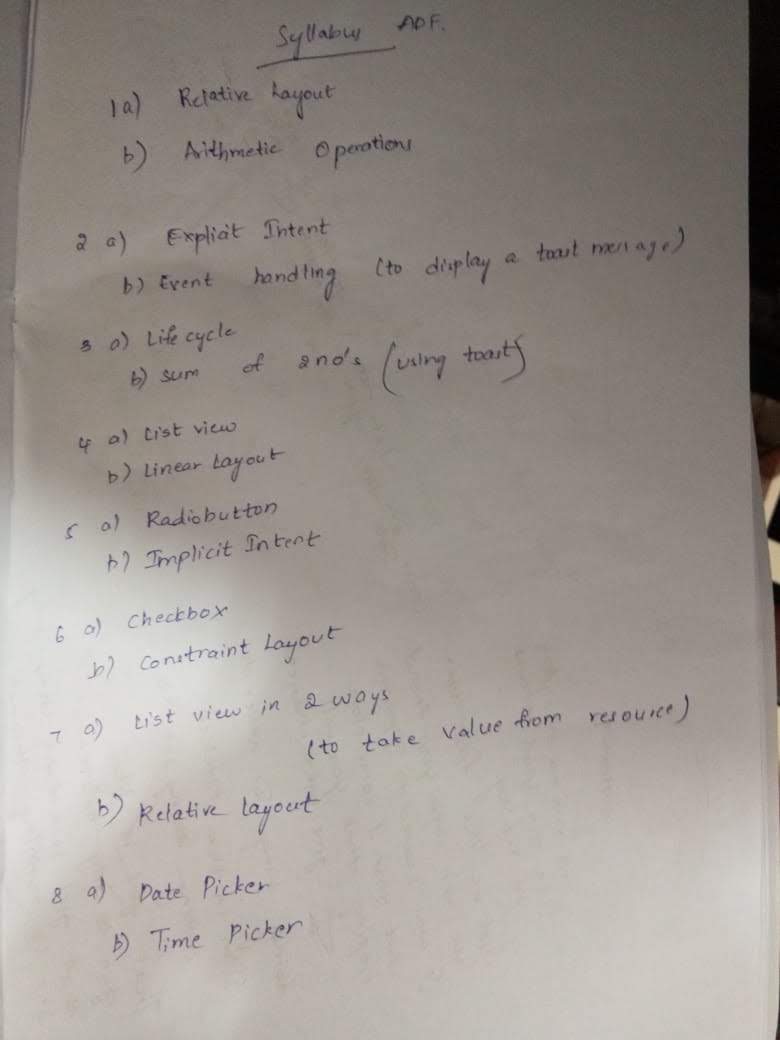 Syllabus ADF.
1 a) Relative Layout
b) Arithmetic Operations
2 a) Explicit Intent
b) Event handling (to display a toast message)
3 a) Life cycle
b) sum of 2 no's (using toast)
4 a) List view
b) Linear Layout
5 a) Radiobutton
b) Implicit Intent
6 a) Checkbox
b) Constraint Layout
7 a) List view in 2 ways
(to take value from resource)
b) Relative layout
8 a) Date Picker
b) Time Picker